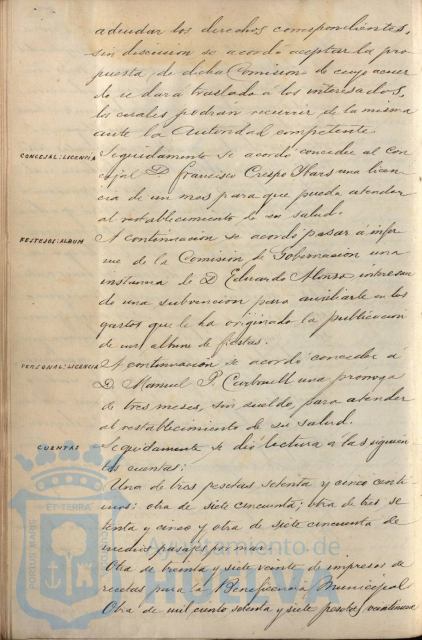 adeudar los derechos correspondientes,
sin discusion se acordó aceptar la pro
puesta de dicha Comision de cuyo acuer
do se dará traslado á los interesados,
los cuales podrán recurrir de la misma
ante la Autoridad competente.
CONCEJAL: LICENCIA Seguidamente se acordó conceder al Con
cejal D. Francisco Crespo Flars una licen
cia de un mes para que pueda atender
al restablecimiento de su salud.
FESTEJOS: ALBUM A continuación se acordó pasar á infor
me de la Comisión de Gobernacion una
instancia de D. Eduardo Alonso interesan
do una subvencion para auxiliarle en los
gastos que le ha originado la publicacion
de un album de fiestas.
PERSONAL: LICENCIA A continuación se acordó conceder a
D. Manuel P. Carbonell una prorroga
de tres meses, sin sueldo, para atender
al restablecimiento de su salud.
CUENTAS Seguidamente se dió lectura á las siguien
tes cuentas:
Una de tres pesetas setenta y cinco centi
mos: otra de siete cincuenta; otra de tres se
tenta y cinco y otra de siete cincuenta de
medios pasajes por mar.
Otra de treinta y siete veinte de impresos de
recetas para la Beneficencia Municipal
Otra de mil ciento setenta y siete pesetas
Ayuntamiento de
HUELVA
PORTUS MARIS
ET TERRÆ